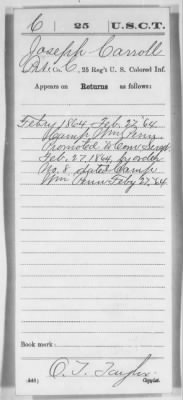 C 25 U.S.C.T.
Joseph Carroll
Pvt. Co. C, 25 Reg't U. S. Colored Inf.
Appears on Returns as follows:
Feby 1864 Feb. 27, '64
Camp Wm Penn
Promoted to Com Sergt
Feb. 27, 1864, by order
No. 8 dated Camp
Wm Penn Feby 27, '64
Book mark:
(546)
Copyist.